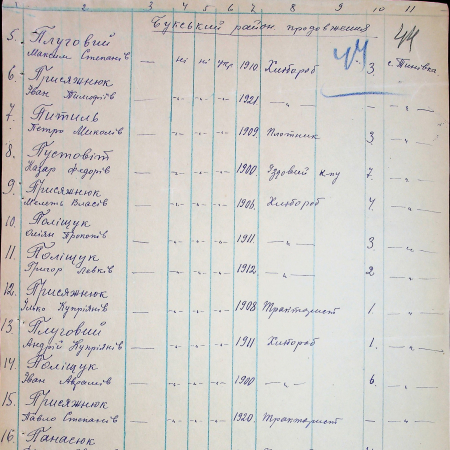 1 2 3 4 5 6 7 8 9 10 11
Букський район продовження
44
5. Плуговий
Максим Степанів — ні ні укр 1910 Хлібороб 3. с. Тинівка
6. Присяжнюк
Іван Тимофіїв — -„- -„- -„- 1921 —„— — —„—
7. Питиль
Петро Миколів — -„- -„- -„- 1909. Плотник 3. —„—
8. Пустовіт
Назар Федорів — -„- -„- -„- 1900. Їздовий 7. —„—
9. Присяжнюк
Власів — -„- -„- -„- 1906. Хлібороб 4. —„—
10. Поліщук
Прокопів — -„- -„- -„- 1911. —„— 3 —„—
11. Поліщук
Григор Левків — -„- -„- -„- 1912 —„— 2 —„—
12. Присяжнюк
Купріянів — -„- -„- -„- 1908 Тракторист 1. —„—
13. Плуговий
Андрій Купріянів — -„- -„- -„- 1911 Хлібороб 1. —„—
14. Поліщук
Іван Аврамів — -„- -„- -„- 1900 —„— 6. —„—
15. Присяжнюк
Павло Степанів — -„- -„- -„- 1920. Тракторист — —„—
16. Панасюк